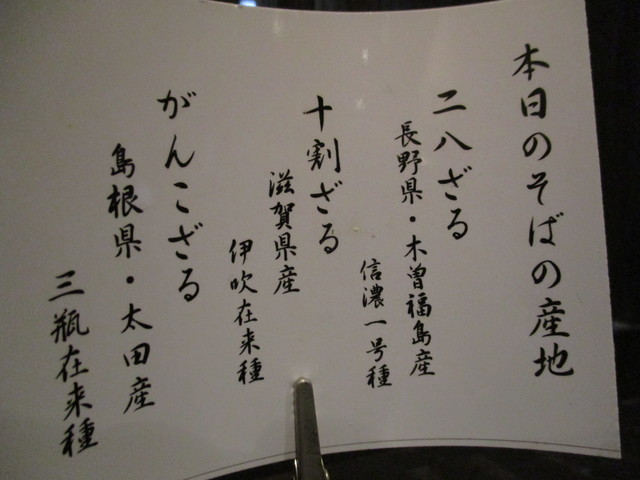 本日のそばの産地
二八ざる
長野県・木曽福島産
信濃一号種
十割ざる
滋賀県産
伊吹在来種
がんこざる
島根県・太田産
三瓶在来種